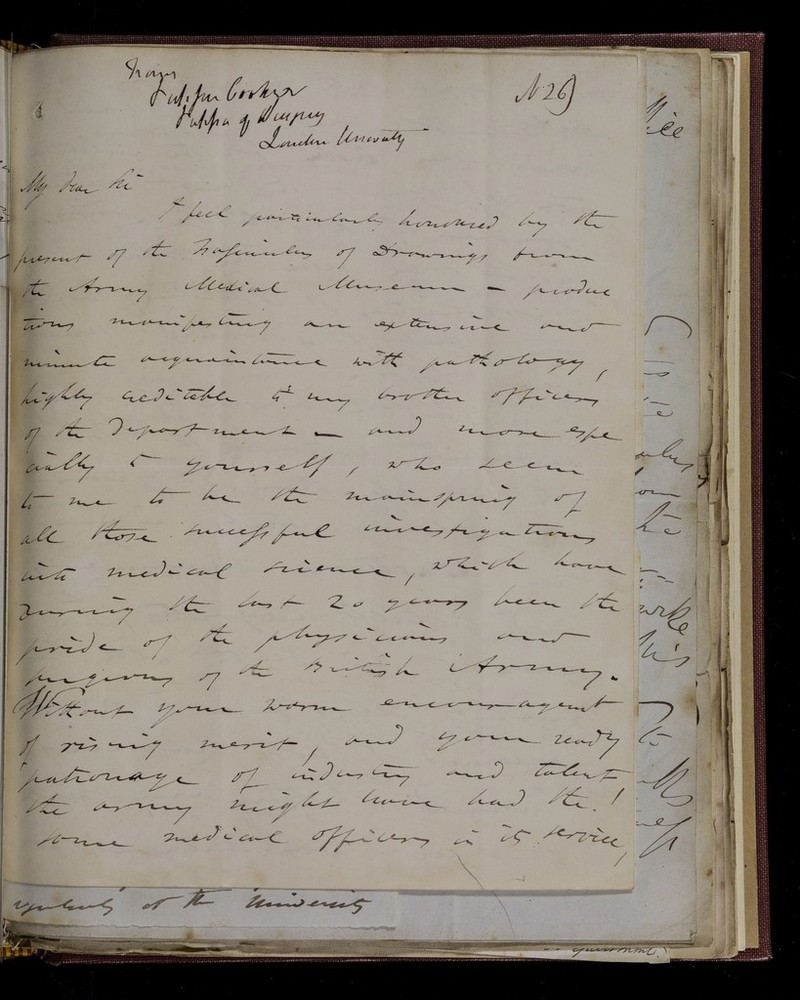 From
Professor Cooper
Professor of Surgery
London University
N 26)
My dear Sir
I feel particularly honoured by the
present of the Fasciculus of Drawings from
the Army Medical Museum - produc
tions manifesting an extensive and
minute acquaintance with pathology,
highly creditable to my brother officers
of the Department - and more espe
cially to yourself, who seem
to me to be the mainspring of
all those successful investigations
into medical science, which have
during the last 20 years been the
pride of the physicians and
surgeons of the British Army.
Without your warm encouragement
of rising merit, and your ready
patronage of industry and talent
the army might have had the!
some medical officers in its service,
at the University